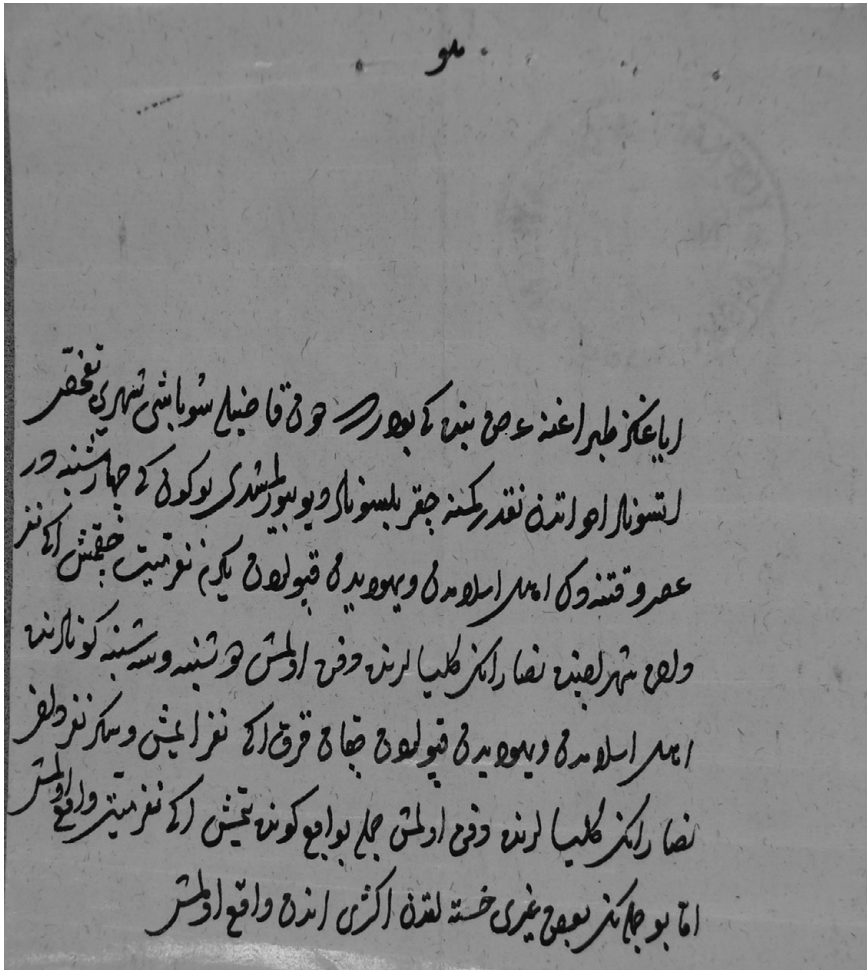 هو
اياغكز طپراغنه عرض بنده كه بودر كه چون قاضيله سوباشى شهرى تفحص
اتسونلر امواتدن نقدر كمسنه چقر بلسونلر ديو بيورلمشدى بو كون كه چهارشنبه در
عصر وقتنه دك اهل اسلامدن ويهوديدن قپولردن يكرم نفر ميت چقمش اكى نفر
دخى شهر ايچنده نصارانك كليسالرنده دفن اولمش دوشنبه وسه شنبه كونلرنده
اهل اسلامدن ويهوديدن قپولردن چقان قرق اكى نفر ايمش وسكز نفر دخى
نصارانك كليسالرنده دفن اولمش جمله بو اوچ كونده يتمش اكى نفر ميت واقع اولمش
اما بو جمله نك بعضى غيرى خسته لقدن اكثرى اندن واقع اولمش